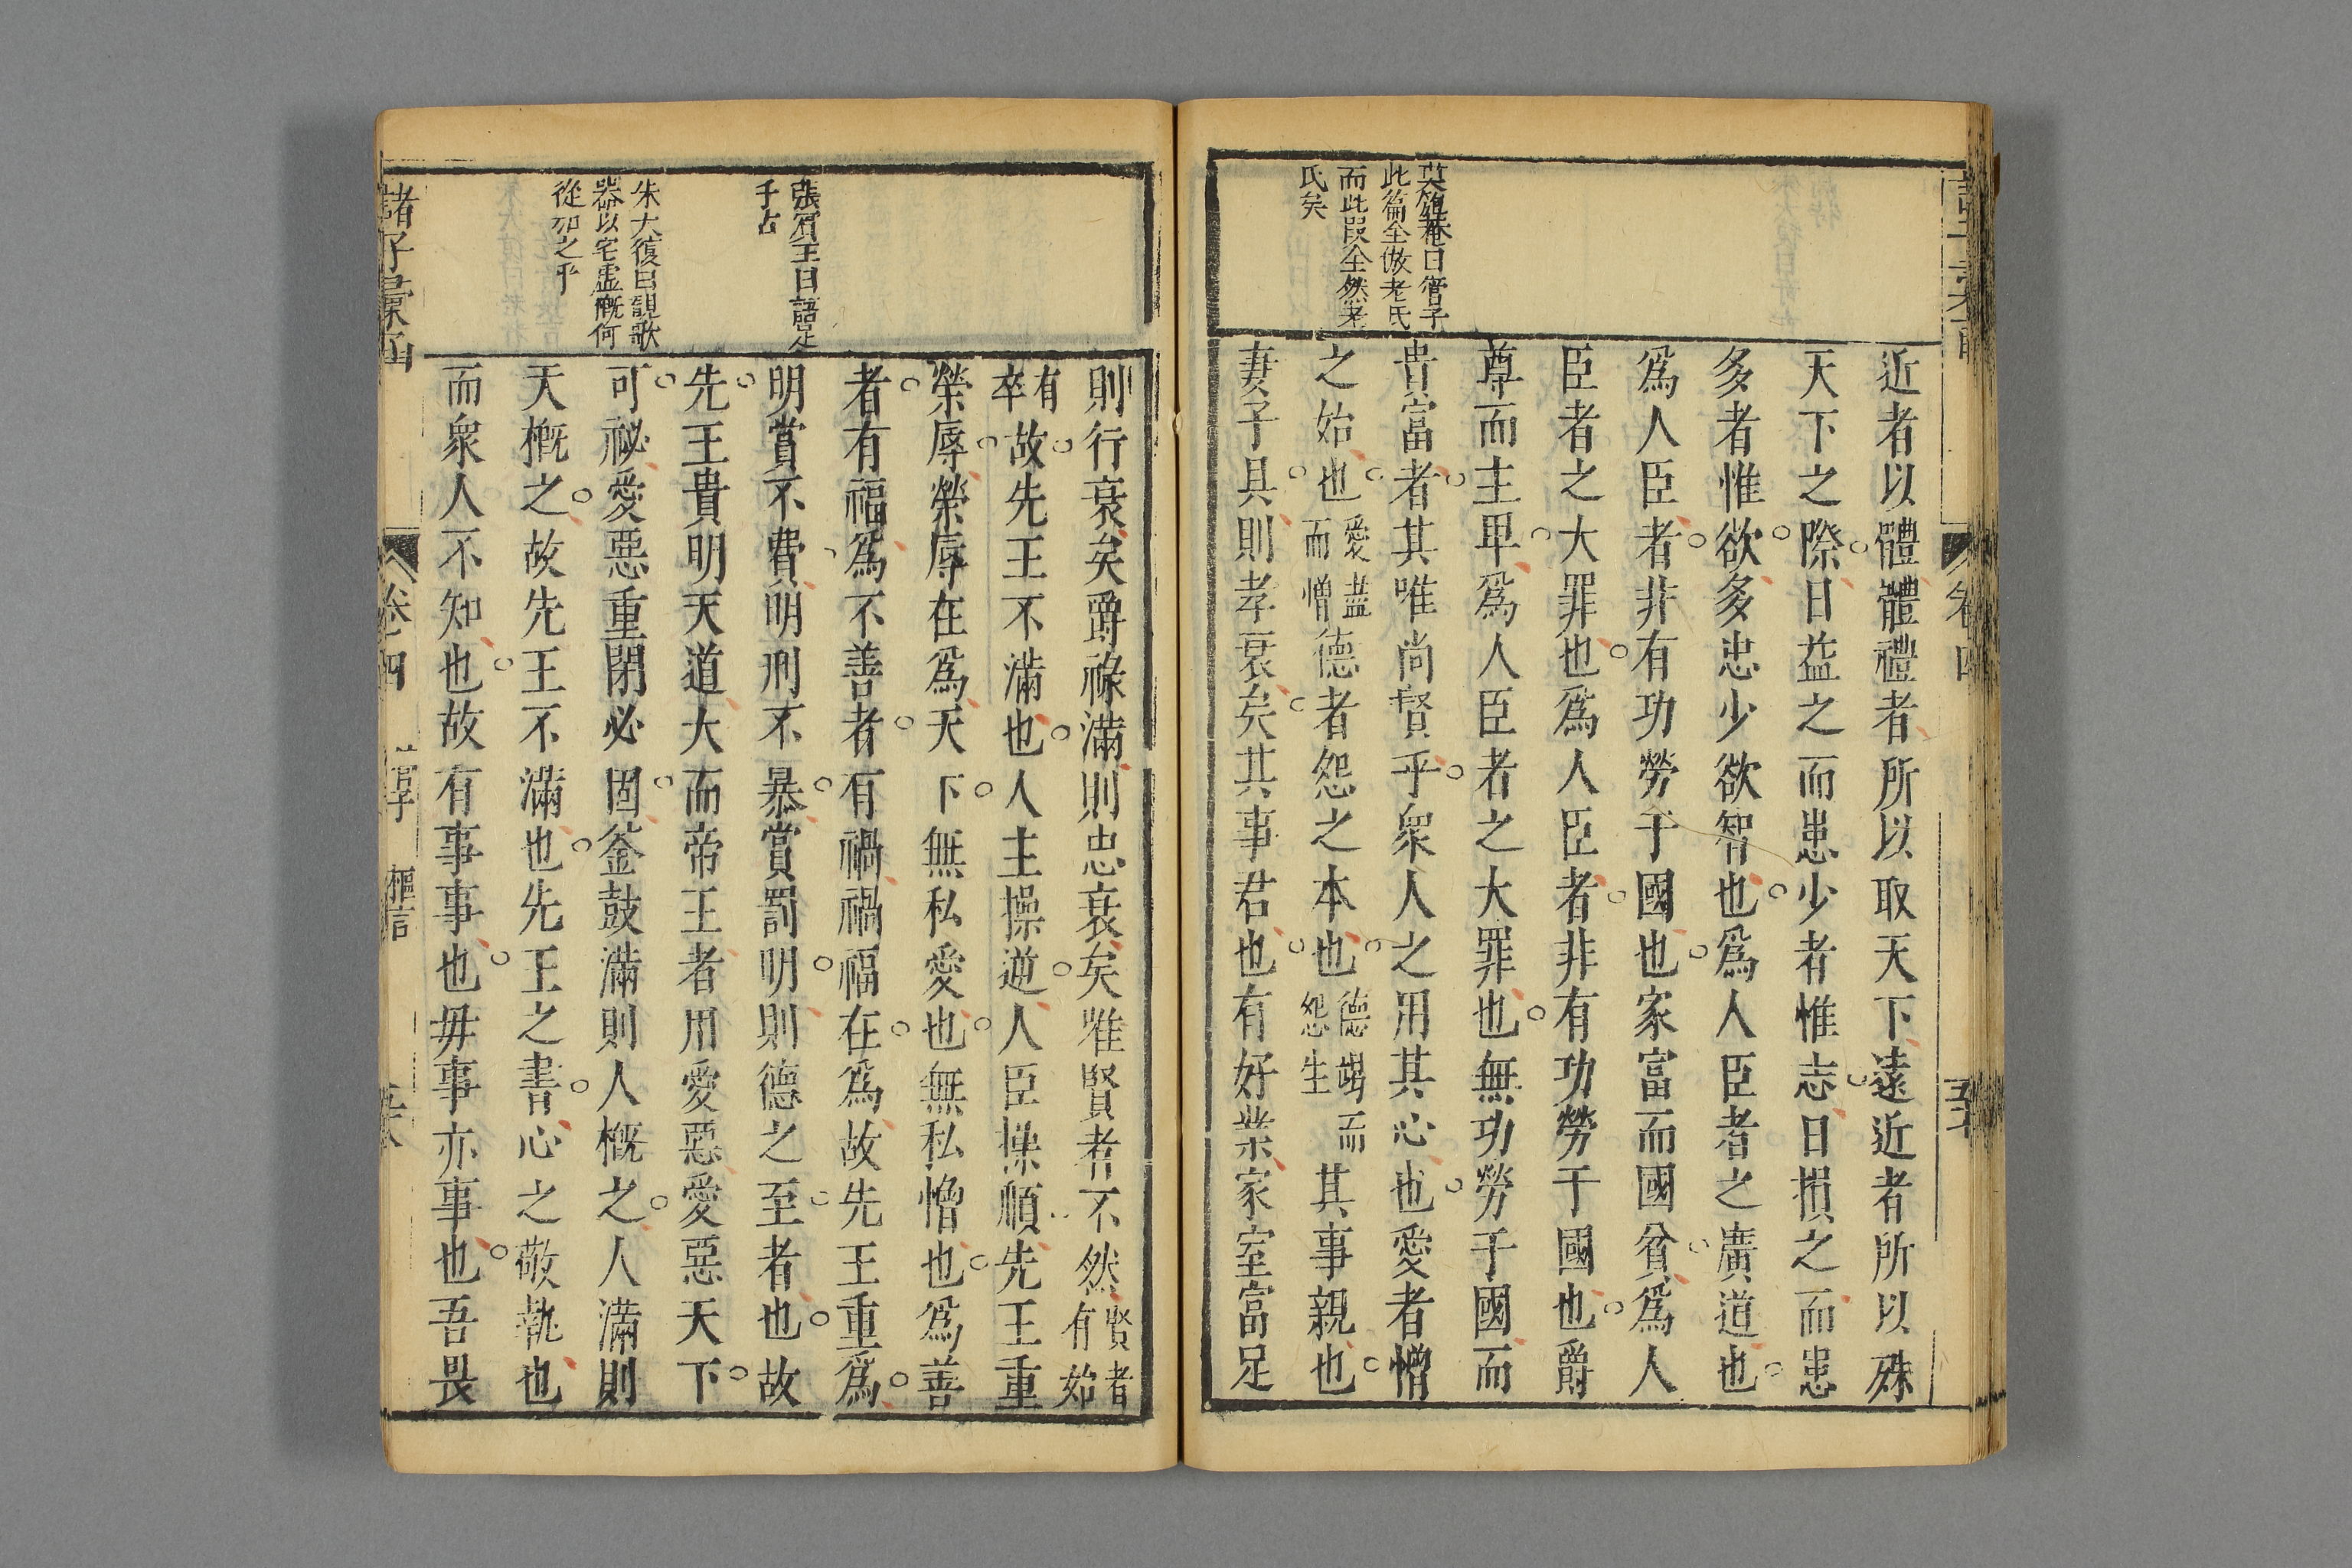 近者以體體禮者所以取天下遠近者所以殊
天下之際日益之而患少者惟志日損之而患
多者惟欲多忠少欲智也爲人臣者之廣道也
爲人臣者非有功勞于國也家富而國貧爲人
臣者之大罪也爲人臣者非有功勞于國也爵
尊而主卑爲人臣者之大罪也無功勞于國而
貴富者其唯尚賢乎衆人之用其心也愛者憎
之始也愛盡而憎德者怨之本也德竭而怨生其事親也
妻子具則孝衰矣其事君也有好業家室富足
曰管子
此篇全倣老氏
而此段全然老
氏矣
則行衰矣爵祿滿則忠衰矣唯賢者不然賢者有始
有卒故先王不滿也人主操逆人臣操順先王重
榮辱榮辱在爲天下無私愛也無私憎也爲善
者有福爲不善者有禍禍福在爲故先王重爲
明賞不費明刑不暴賞罰明則德之至者也故
先王貴明天道大而帝王者用愛惡愛惡天下
可祕愛惡重閉必固釜鼓滿則人概之人滿則
天概之故先王不滿也先王之書心之敬執也
而衆人不知也故有事事也毋事亦事也吾畏
張賓王曰語足
千古
朱大復曰覩歌
器以宅虛概何
從加之乎
諸子彙函
卷四
管子
樞言